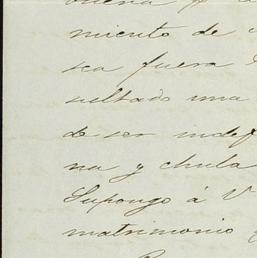 buena y la
miento de
sea fuera
sultado una
de ser indef
na y chula
Supongo á V
matrimonio